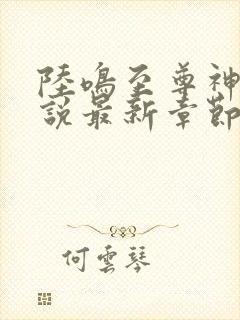 陸鳴至尊神
說最新章節
何雲琴